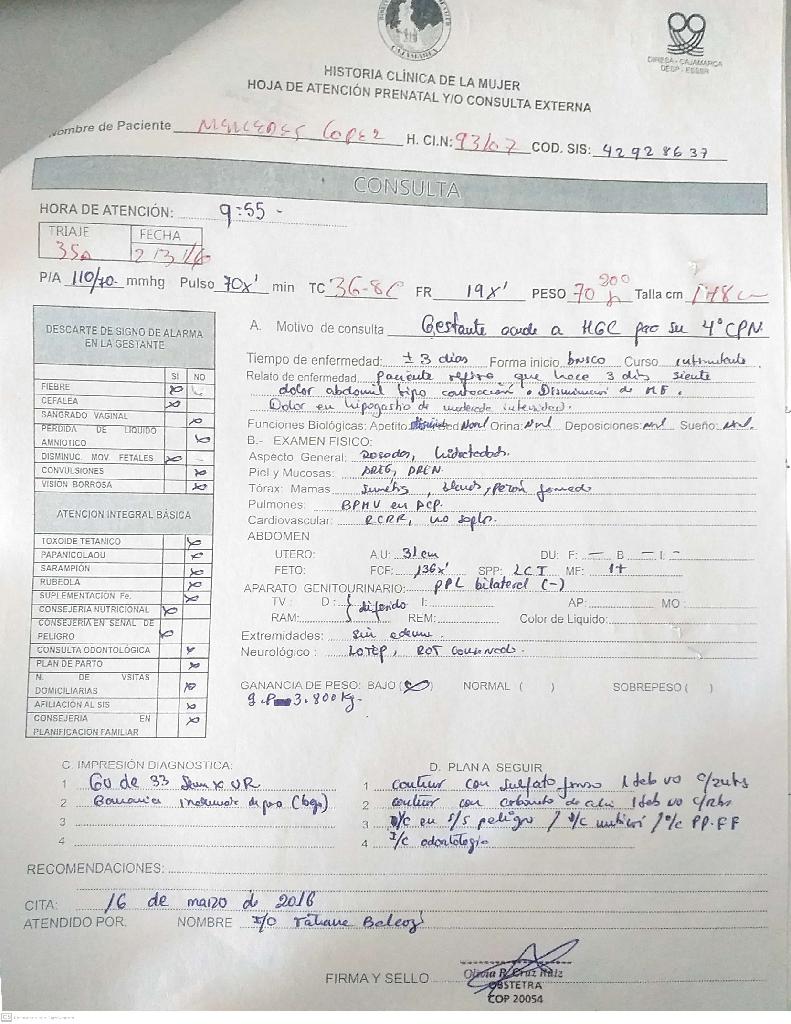 CAJAMARCA
DIRESA - CAJAMARCA
DESP - ESSSR
HISTORIA CLÍNICA DE LA MUJER
HOJA DE ATENCIÓN PRENATAL Y/O CONSULTA EXTERNA
Nombre de Paciente Mercedes Lopez H. Cl.N: 93107 COD. SIS: 42928637
CONSULTA
HORA DE ATENCIÓN: 9:55 -
TRIAJE FECHA
35a 2/3/16
P/A 110/70 mmhg Pulso 70x' min TC 36.8C FR 19x' PESO 70 200 Talla cm 148 cm
DESCARTE DE SIGNO DE ALARMA
EN LA GESTANTE
SI NO
FIEBRE
CEFALEA
SANGRADO VAGINAL
PERDIDA DE LIQUIDO
AMNIOTICO
DISMINUC. MOV. FETALES
CONVULSIONES
VISIÓN BORROSA
ATENCION INTEGRAL BÁSICA
TOXOIDE TETANICO
PAPANICOLAOU
SARAMPIÓN
RUBEOLA
SUPLEMENTACION Fe.
CONSEJERIA NUTRICIONAL
CONSEJERIA EN SEÑAL DE
PELIGRO
CONSULTA ODONTOLÓGICA
PLAN DE PARTO
N. DE VSITAS
DOMICILIARIAS
AFILIACIÓN AL SIS
CONSEJERIA EN
PLANIFICACION FAMILIAR
A. Motivo de consulta Gestante acude a HGC para su 4° CPN.
Tiempo de enfermedad: ± 3 dias Forma inicio brusco Curso intermitente
Relato de enfermedad paciente refiere que hace 3 dias siente
dolor abdominal tipo contracción. Disminución de MF.
Dolor en hipogastrio de moderada intensidad.
Funciones Biológicas: Apetito Sed Nml Orina: Nml Deposiciones: Nml Sueño: Nml.
B.- EXAMEN FISICO:
Aspecto General: Rosadas, hidratadas.
Piel y Mucosas: AREG, AREN.
Tórax: Mamas simétricas, blandas, pezón formado
Pulmones: BPMV en ACP.
Cardiovascular: RCRR, no soplos.
ABDOMEN
UTERO: A.U: 31 cm DU: F: — B — I: -
FETO: FCF: 136x' SPP: LCI MF: 1+
APARATO GENITOURINARIO: PPL bilateral (-)
TV : D : diferido I: AP: MO :
RAM: REM: Color de Liquido:
Extremidades: sin edema.
Neurológico : LOTEP, ROT conservado.
GANANCIA DE PESO: BAJO ( ) NORMAL ( ) SOBREPESO ( )
g.P 3.800 kg.
C. IMPRESIÓN DIAGNOSTICA:
1 Gv de 33 Sem x UR
2 Ganancia inadecuada de peso (bajo)
3
4
D. PLAN A SEGUIR
1 continuar con sulfato ferroso 1 tab vo c/24hs
2 continuar con carbonato de calcio 1 tab vo c/24hs
3 O/C en s/s peligro / O/C nutrición / O/c PP.FF
4 I/C odontologia
RECOMENDACIONES:
CITA: 16 de marzo de 2016
ATENDIDO POR. NOMBRE I/O
FIRMA Y SELLO
Olivia R. Cruz Ruiz
OBSTETRA
COP 20054
CS